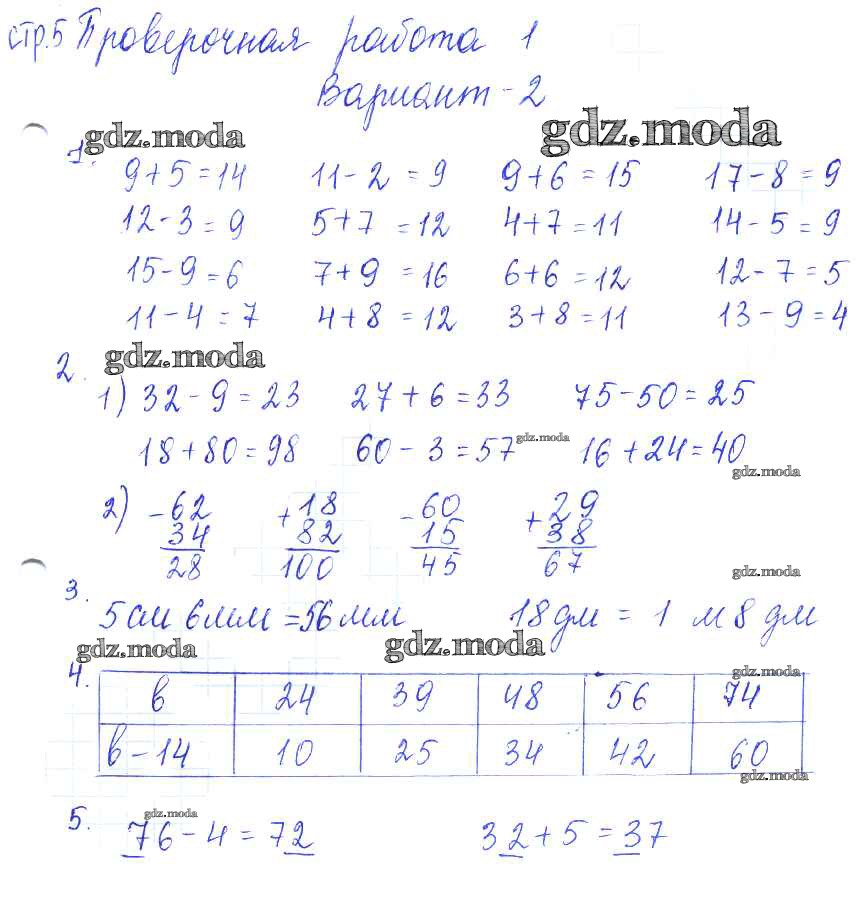 стр.5 Проверочная работа 1
Вариант-2
gdz.moda gdz.moda
1. 9+5=14 11-2=9 9+6=15 17-8=9
12-3=9 5+7=12 4+7=11 14-5=9
15-9=6 7+9=16 6+6=12 12-7=5
11-4=7 4+8=12 3+8=11 13-9=4
gdz.moda
2. 1) 32-9=23 27+6=33 75-50=25
gdz.moda
18+80=98 60-3=57 16+24=40
gdz.moda
2) -62 +18 -60 +29
34 82 15 38
28 100 45 67
gdz.moda
3. 5см 6мм=56мм 18дм = 1 м 8 дм
gdz.moda gdz.moda
gdz.moda
4. в 24 39 48 56 74
в-14 10 25 34 42 60
gdz.moda
gdz.moda
5. 76-4=72 32+5=37